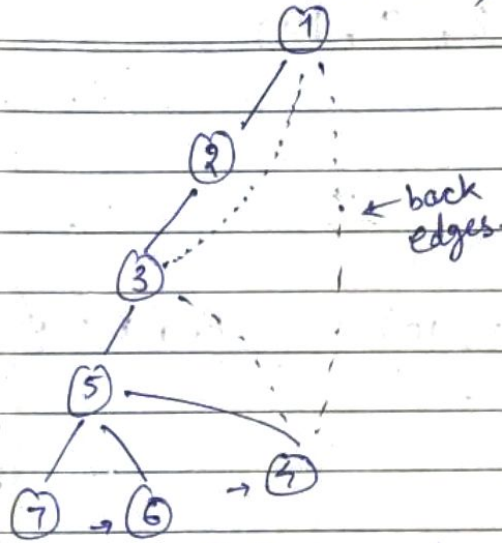 1
2
← back
edges
3
5
→ 4
7 → 6